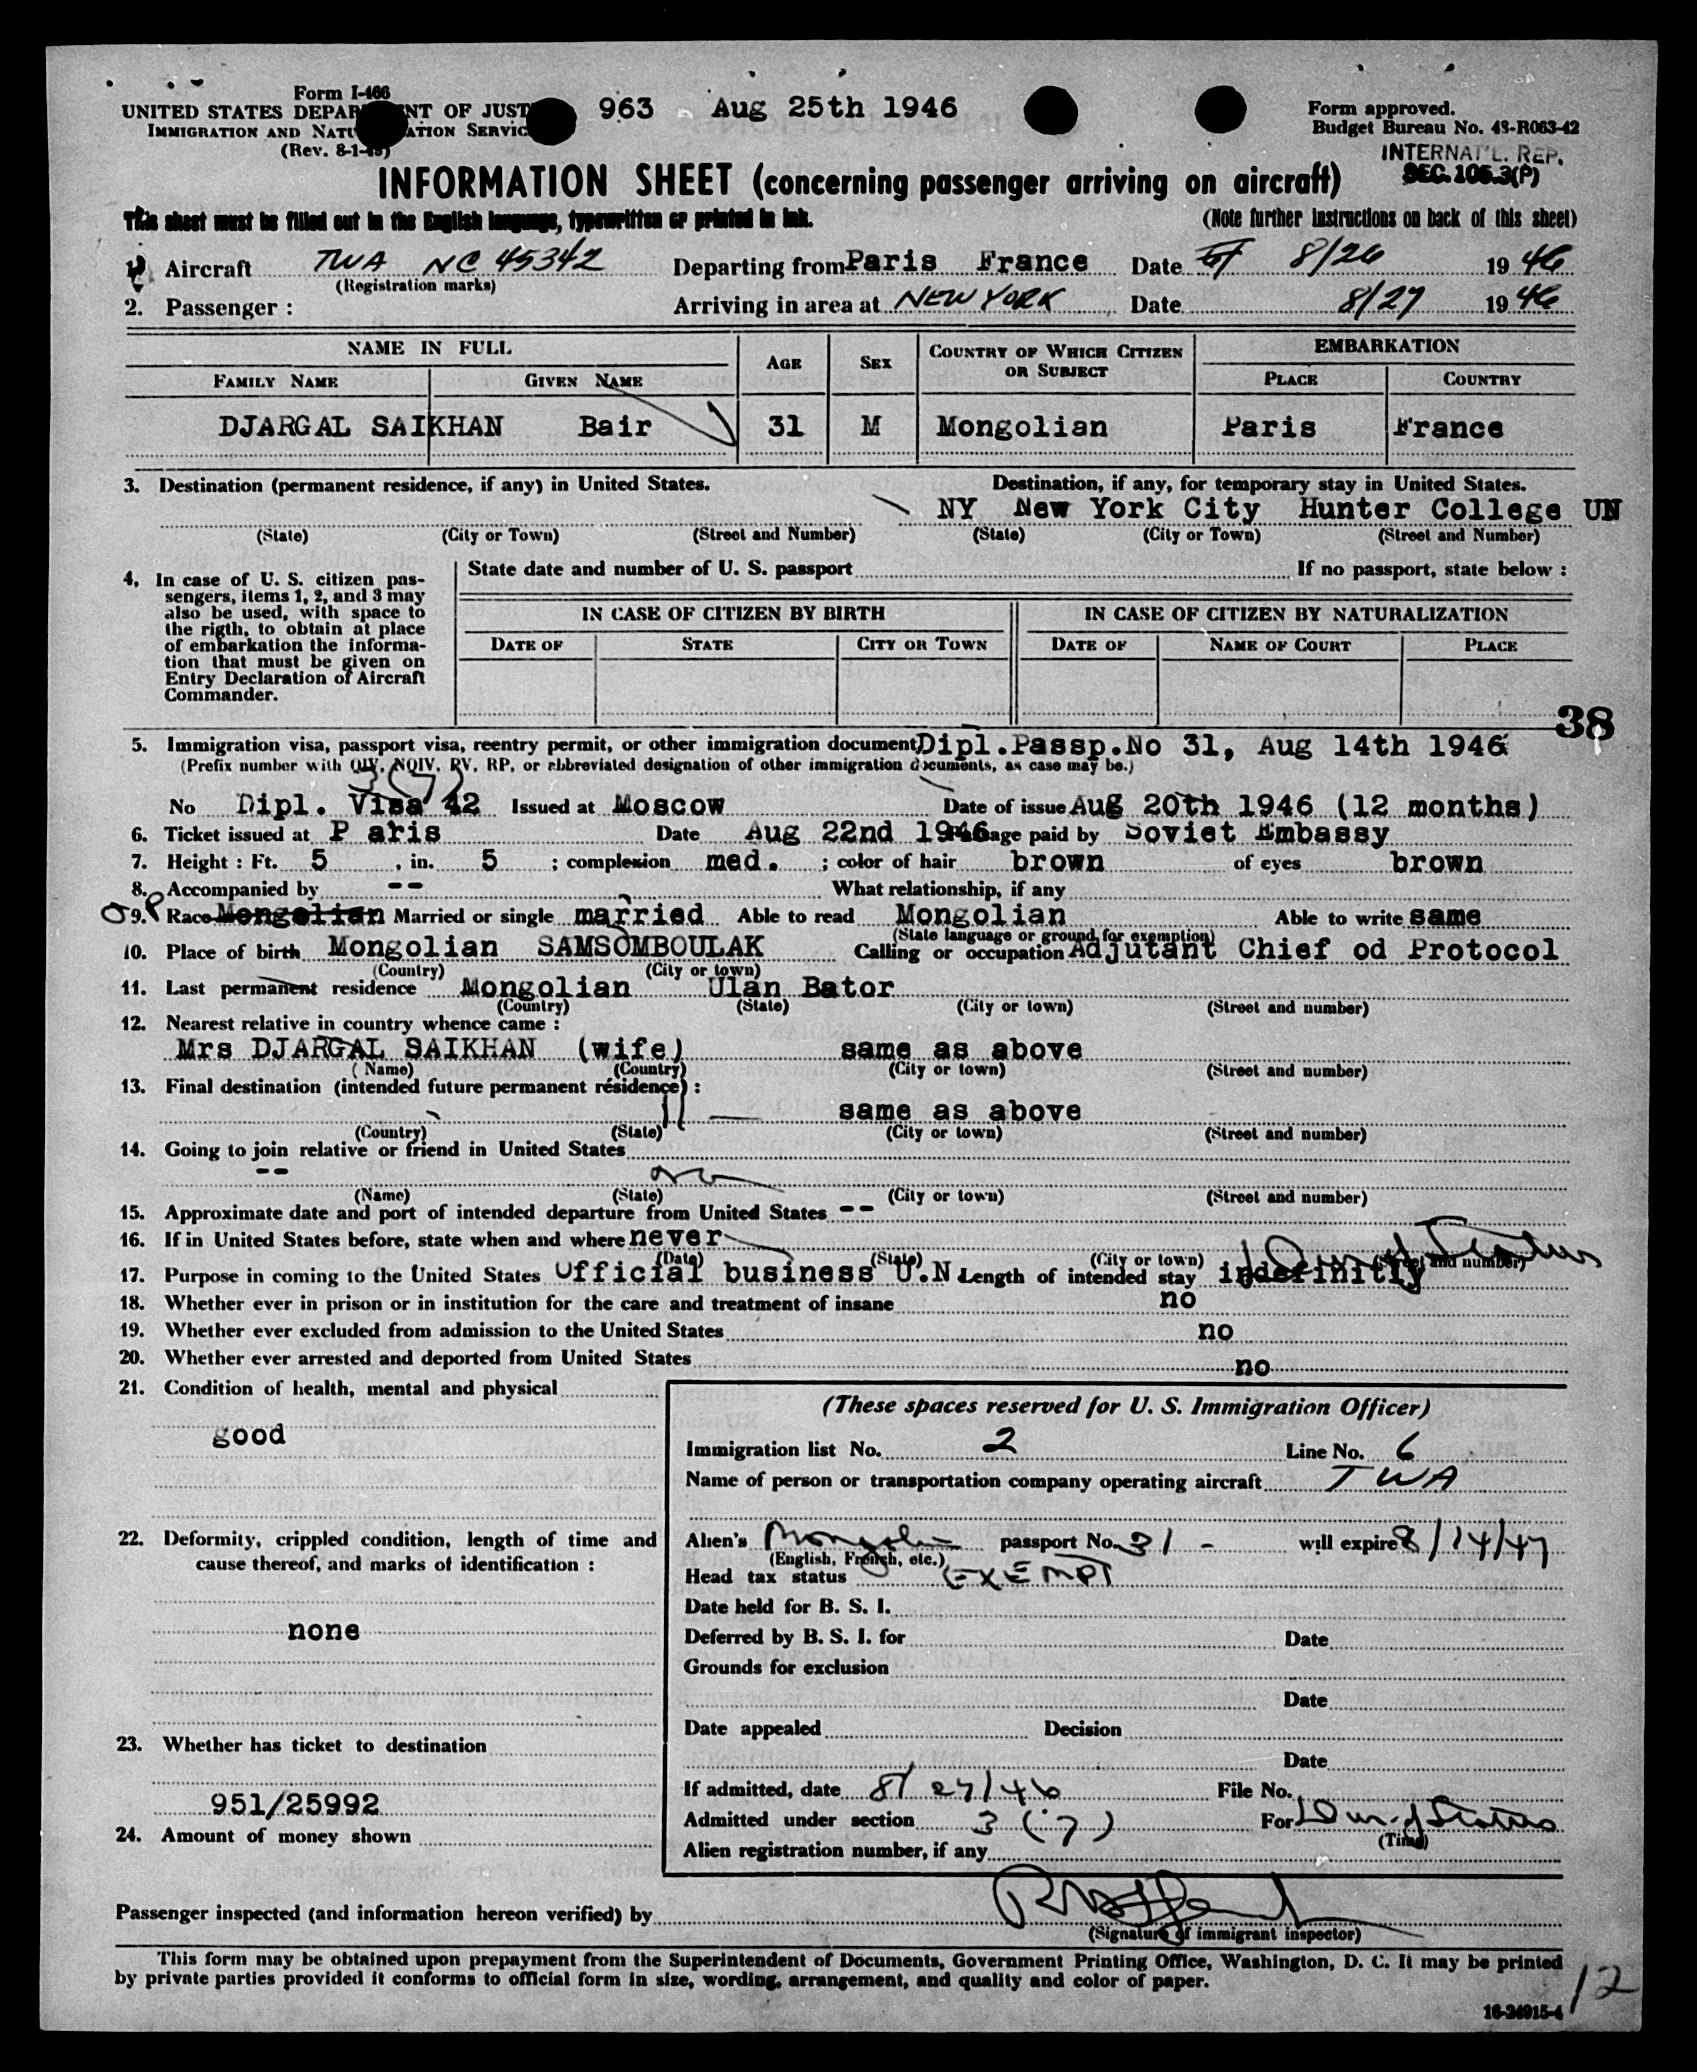 Form I-466
UNITED STATES DEPAR NT OF JUST 963 Aug 25th 1946 Form approved.
IMMIGRATION AND NATU ATION SERVIC Budget Bureau No. 43-R063-42
(Rev. 8-1-45) INTERNAT'L. REP.
INFORMATION SHEET (concerning passenger arriving on aircraft) SEC. 105.3(P)
This sheet must be filled out in the English language, typewritten or printed in ink. (Note further instructions on back of this sheet)
1. Aircraft TWA NC 45342 Departing from Paris France Date 8/26 1946
(Registration marks)
2. Passenger : Arriving in area at NEW YORK Date 8/27 1946
NAME IN FULL AGE SEX COUNTRY OF WHICH CITIZEN OR SUBJECT EMBARKATION
FAMILY NAME GIVEN NAME PLACE COUNTRY
DJARGAL SAIKHAN Bair 31 M Mongolian Paris France
3. Destination (permanent residence, if any) in United States. Destination, if any, for temporary stay in United States.
NY New York City Hunter College UN
(State) (City or Town) (Street and Number) (State) (City or Town) (Street and Number)
4. In case of U. S. citizen pas-
sengers, items 1, 2, and 3 may
also be used, with space to
the rigth, to obtain at place
of embarkation the informa-
tion that must be given on
Entry Declaration of Aircraft
Commander.
State date and number of U. S. passport If no passport, state below :
IN CASE OF CITIZEN BY BIRTH IN CASE OF CITIZEN BY NATURALIZATION
DATE OF STATE CITY OR TOWN DATE OF NAME OF COURT PLACE
38
5. Immigration visa, passport visa, reentry permit, or other immigration document Dipl.Passp.No 31, Aug 14th 1946
(Prefix number with QIV, NQIV, PV, RP, or abbreviated designation of other immigration documents, as case may be.)
3(7)
No Dipl. Visa 42 Issued at Moscow Date of issue Aug 20th 1946 (12 months)
6. Ticket issued at P aris Date Aug 22nd 1946 Passage paid by Soviet Embassy
7. Height : Ft. 5 , in. 5 ; complexion med. ; color of hair brown of eyes brown
8. Accompanied by -- What relationship, if any
9. Race Mongolian Married or single married Able to read Mongolian Able to write same
(State language or ground for exemption)
10. Place of birth Mongolian SAMSOMBOULAK Calling or occupation Adjutant Chief od Protocol
(Country) (City or town)
11. Last permanent residence Mongolian Ulan Bator
(Country) (State) (City or town) (Street and number)
12. Nearest relative in country whence came :
Mrs DJARGAL SAIKHAN (wife) same as above
(Name) (Country) (City or town) (Street and number)
13. Final destination (intended future permanent résidence) :
same as above
(Country) (State) (City or town) (Street and number)
14. Going to join relative or friend in United States
-- no
(Name) (State) (City or town) (Street and number)
15. Approximate date and port of intended departure from United States --
16. If in United States before, state when and where never
(Date) (State) (City or town) (Street and number)
Dur of Status
17. Purpose in coming to the United States Official business U.N. Length of intended stay indefinitly
18. Whether ever in prison or in institution for the care and treatment of insane no
19. Whether ever excluded from admission to the United States no
20. Whether ever arrested and deported from United States no
21. Condition of health, mental and physical
good
22. Deformity, crippled condition, length of time and
cause thereof, and marks of identification :
none
23. Whether has ticket to destination
951/25992
24. Amount of money shown
(These spaces reserved for U. S. Immigration Officer)
Immigration list No. 2 Line No. 6
Name of person or transportation company operating aircraft TWA
Alien's Mongolian passport No. 31 - will expire 8/14/47
(English, French, etc.)
Head tax status EXEMPT
Date held for B. S. I.
Deferred by B. S. I. for Date
Grounds for exclusion
Date
Date appealed Decision
Date
If admitted, date 8/27/46 File No.
Admitted under section 3 (7) For Dur of Status
(Time)
Alien registration number, if any
Passenger inspected (and information hereon verified) by
(Signature of immigrant inspector)
This form may be obtained upon prepayment from the Superintendent of Documents, Government Printing Office, Washington, D. C. It may be printed
by private parties provided it conforms to official form in size, wording, arrangement, and quality and color of paper.
12
16-24915-4